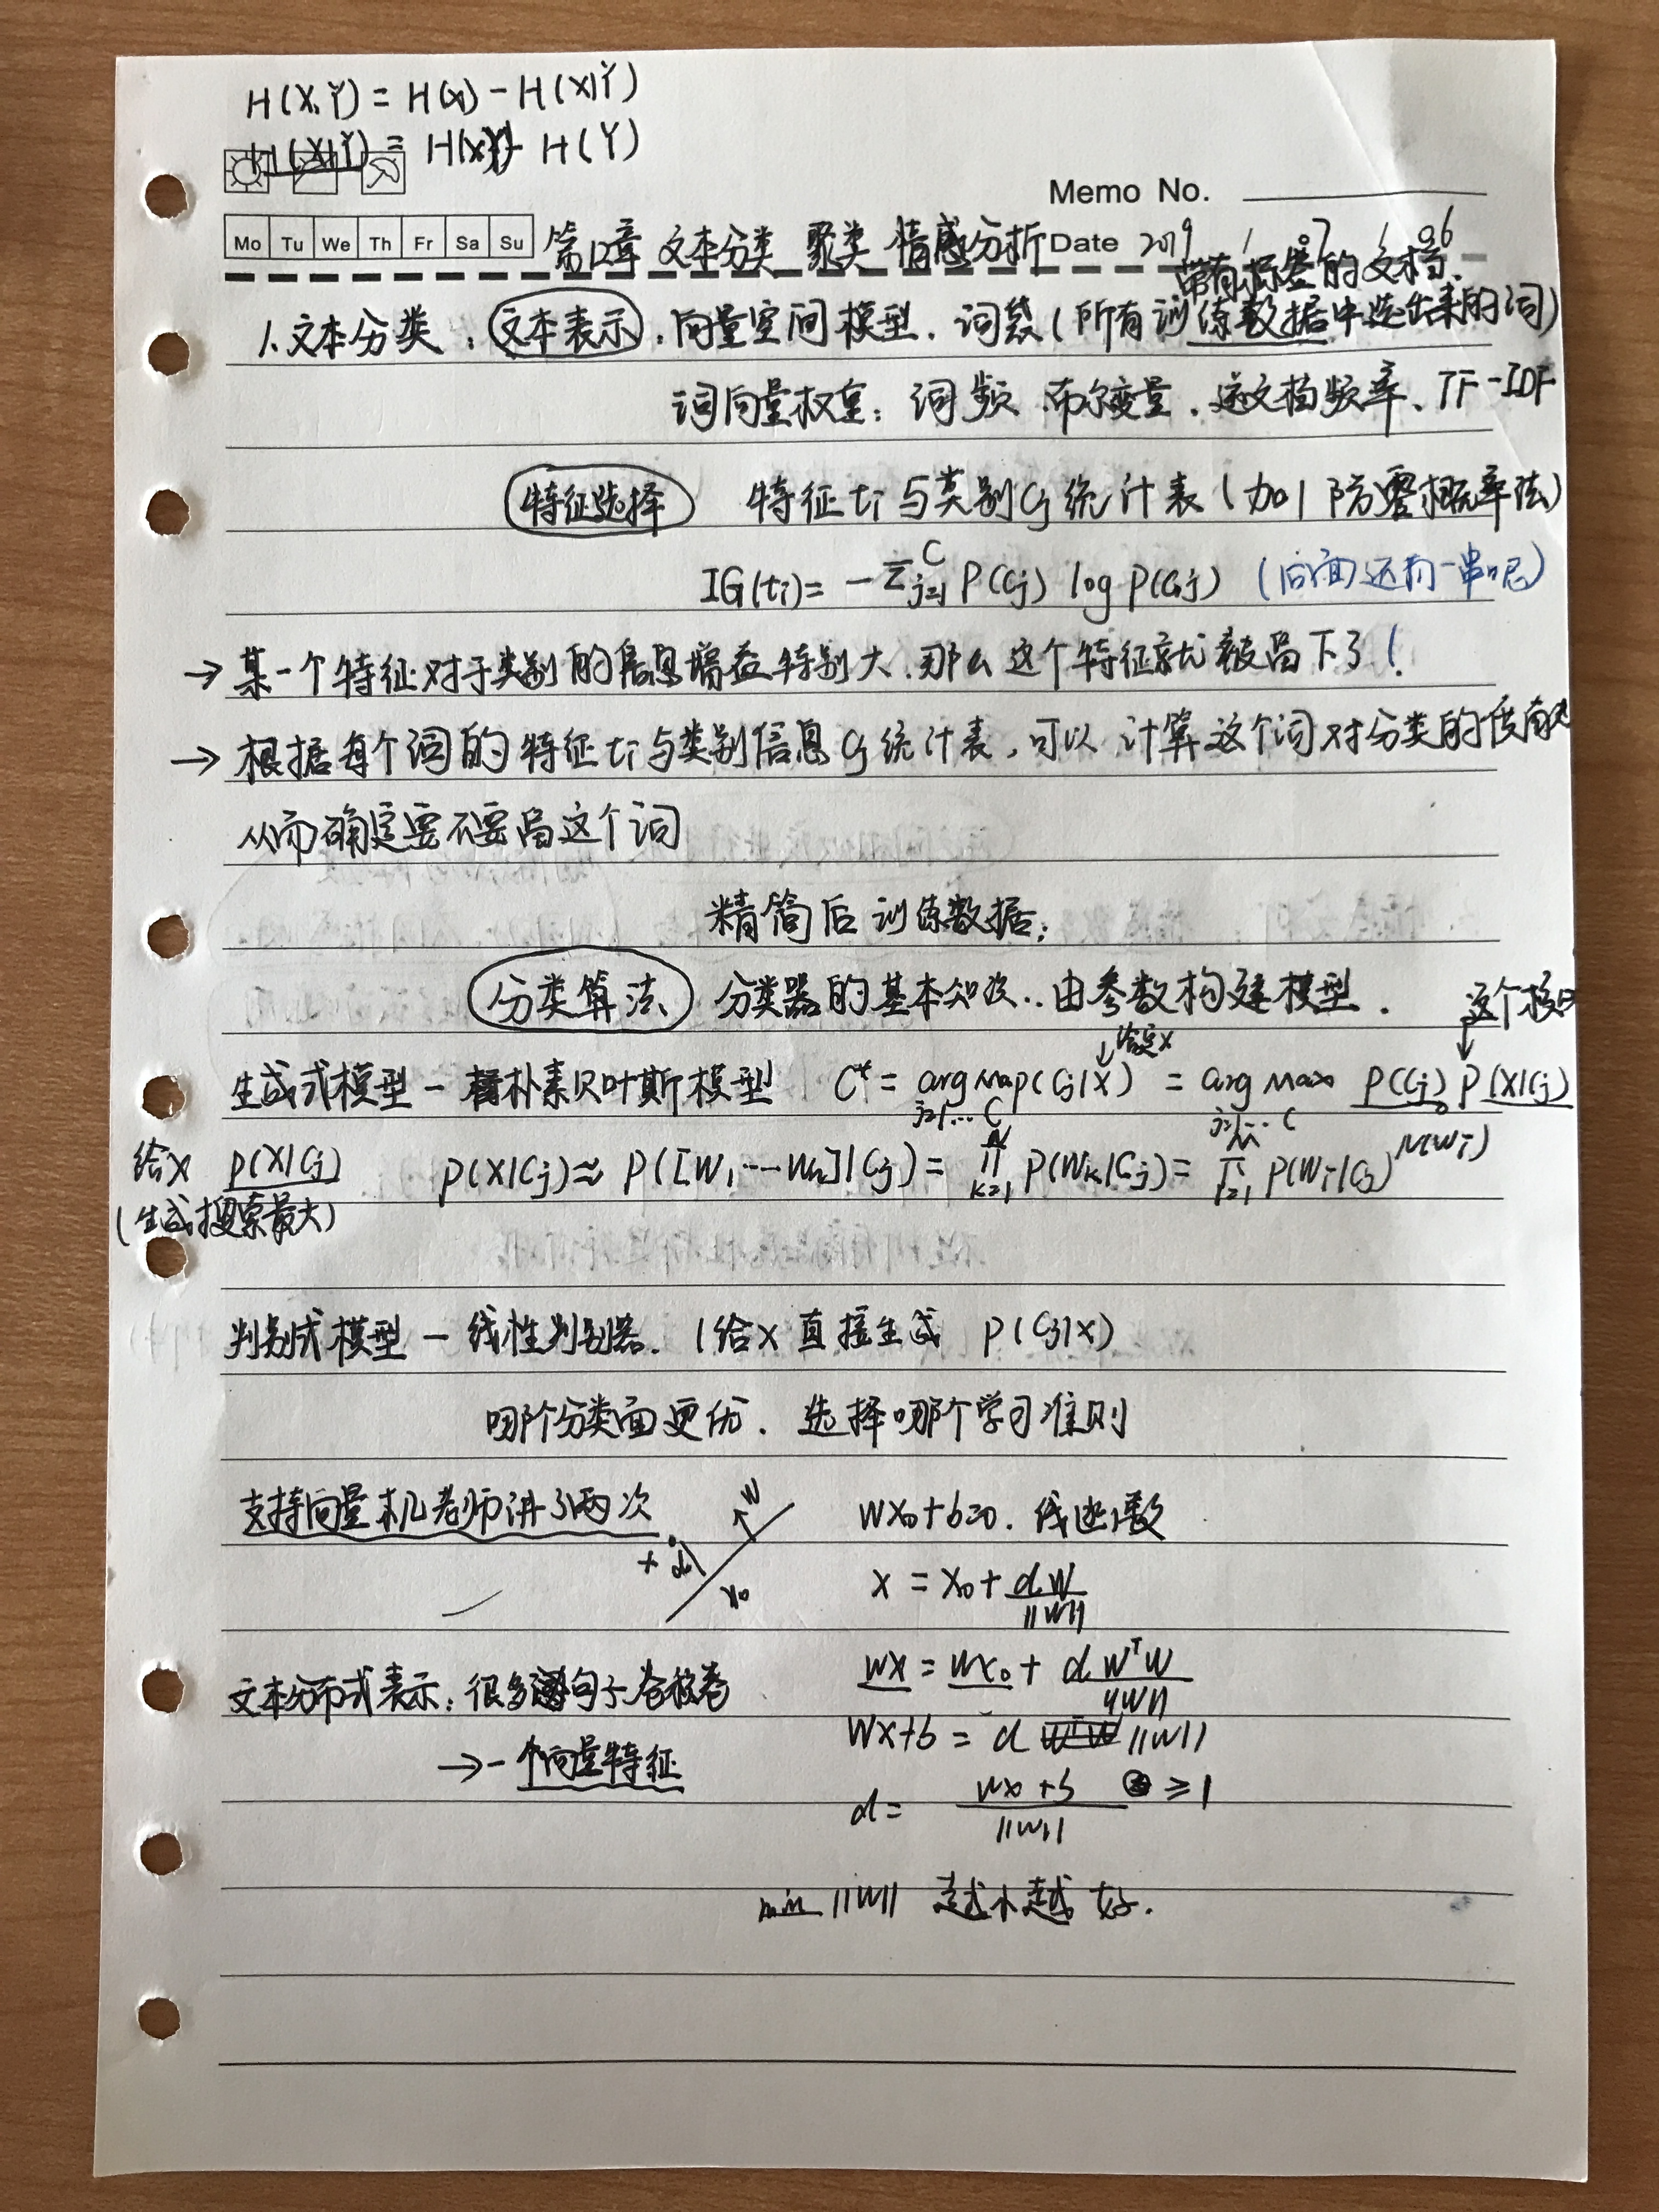 H(X,Y) = H(X) - H(X|Y)
H(X|Y) = H(XY) - H(Y)
Memo No.
Mo Tu We Th Fr Sa Su 第12章 文本分类 聚类 情感分析 Date 2019 / 07 / 06
带有标签的文档.
1.文本分类:文本表示.向量空间模型.词袋(所有训练数据中选出来的词)
词向量权重:词频.布尔变量.逆文档频率、TF-IDF
特征选择 特征ti与类别Cj统计表(加1防零概率法)
IG(ti)= -Σ_{j=1}^{C} P(Cj) log P(Cj) (后面还有一串呢)
→ 某一个特征对于类别的信息增益特别大.那么这个特征就被留下了!
→ 根据每个词的特征ti与类别信息Cj统计表,可以计算这个词对分类的贡献
从而确定要不要留这个词
精简后训练数据:
分类算法 分类器的基本知识..由参数构建模型.
这个模
↓给定X ↓
生成式模型 - 朴素贝叶斯模型 C* = arg max p(Cj|X) = arg max P(Cj) P(X|Cj)
j=1...C j=1...C
给X P(X|Cj) P(X|Cj)≈ P([W1…Wn]|Cj) = Π_{k=1}^{N} P(Wk|Cj) = Π_{i=1}^{M} P(Wi|Cj)^{N(Wi)}
(生成搜索最大)
判别式模型 - 线性判别器. (给X直接生成 P(Cj|X)
哪个分类面更优. 选择哪个学习准则
支持向量机老师讲了两次
W
x d
x0
WX0+b=0.
X = X0 + dW/||W||
WX = WX0 + d W^T W/||W||
文本分布式表示:很多句子卷积卷
→一个向量特征
WX+b = d ||W||
d = WX+b/||W|| ≥1
min ||W|| 越小越好.